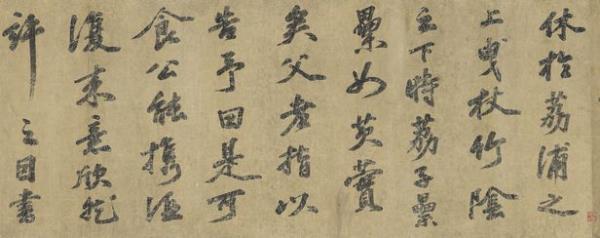 休於荔浦之
上曳杖竹陰
之下時荔子纍
纍如芡實
矣父老指以
告予曰是可
食公能攜酒
復來意欣然
許之書